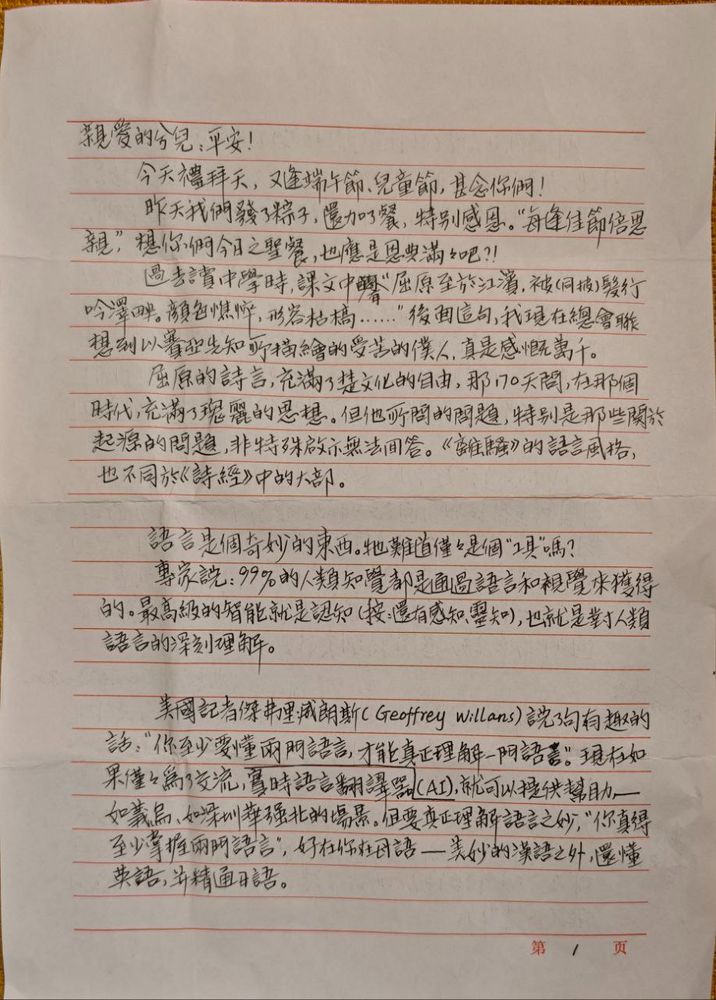 親愛的兮兒：平安！
今天禮拜天，又逢端午節、兒童節，甚念你們！
昨天我們發了粽子，還加了餐，特别感恩。“每逢佳節倍思
親”，想你們今日之聖餐，也應是恩典滿々吧？！
過去讀中學時，課文中有“屈原至於江濱，被(同披)髮行
吟澤畔。顏色憔悴，形容枯槁……”後面這句，我現在總會聯
想到以賽亞先知所描繪的受苦的僕人，真是感慨萬千。
屈原的詩言，充滿了楚文化的自由，那170天問，在那個
時代，充滿了瑰麗的思想。但他所問的問題，特别是那些關於
起源的問題，非特殊啟示無法回答。《離騷》的語言風格，
也不同於《詩經》中的大部。
語言是個奇妙的東西。牠難道僅々是個“工具”嗎？
專家説：99%的人類知覺都是通過語言和視覺來獲得
的。最高級的智能就是認知(按：還有感知、靈知)，也就是對人類
語言的深刻理解。
美國記者傑弗里威朗斯(Geoffrey Willans)説了句有趣的
話：“你至少要懂兩門語言，才能真正理解一門語言”。現在如
果僅々爲了交流，實時語言翻譯器(AI)，就可以提供幫助—
如義烏、如深圳華强北的場景。但要真正理解語言之妙，“你真得
至少掌握兩門語言”，好在你在母語—美妙的漢語之外，還懂
英語，并精通日語。
第 1 页